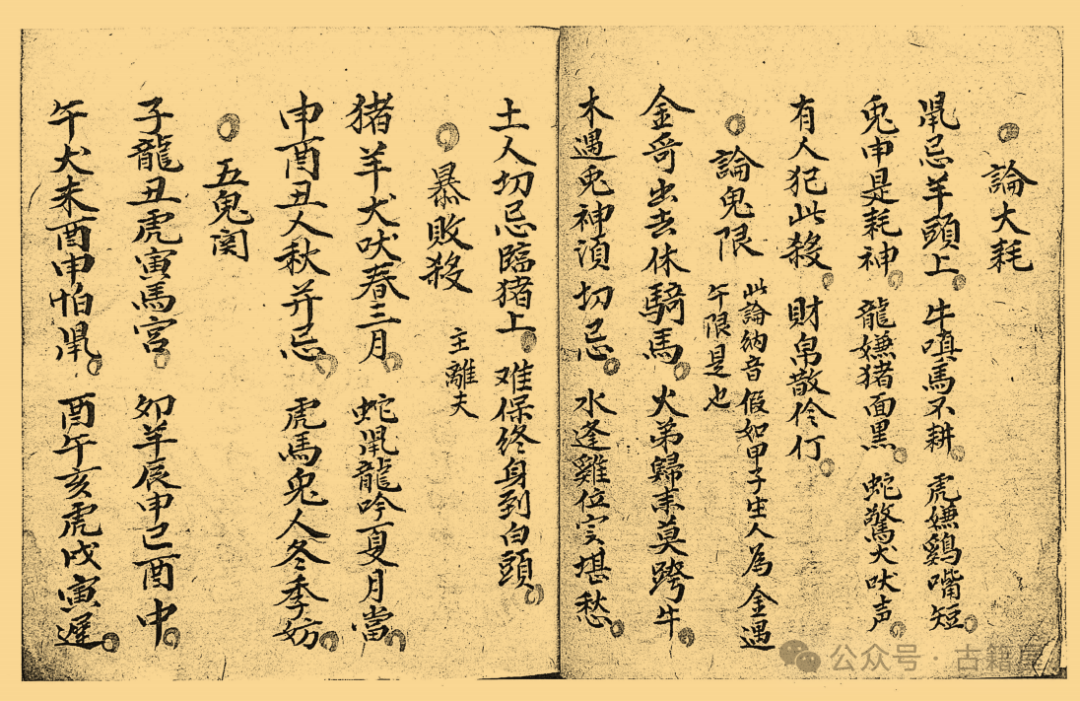 論大耗
鼡忌羊頭上。牛嗔馬不耕。虎嫌鷄嘴短。
兎申是耗神。龍嫌猪面黒。蛇驚犬吠声。
有人犯此殺。財帛散伶仃。
論鬼限 此論納音假如甲子生人為金遇
午限是也
金哥出去休騎馬。火弟歸来莫跨牛。
木遇兎神須切忌。水逢雞位实堪愁。
土人切忌臨猪上。难保終身到白頭。
暴敗殺 主離夫
猪羊犬吠春三月。蛇鼡龍吟夏月當。
申酉丑人秋并忌。虎馬兎人冬季妨。
五鬼関
子龍丑虎寅馬宮。卯羊辰申巳酉中。
午犬未酉申怕鼡。酉午亥虎戌寅遲。
公众号·古籍屋